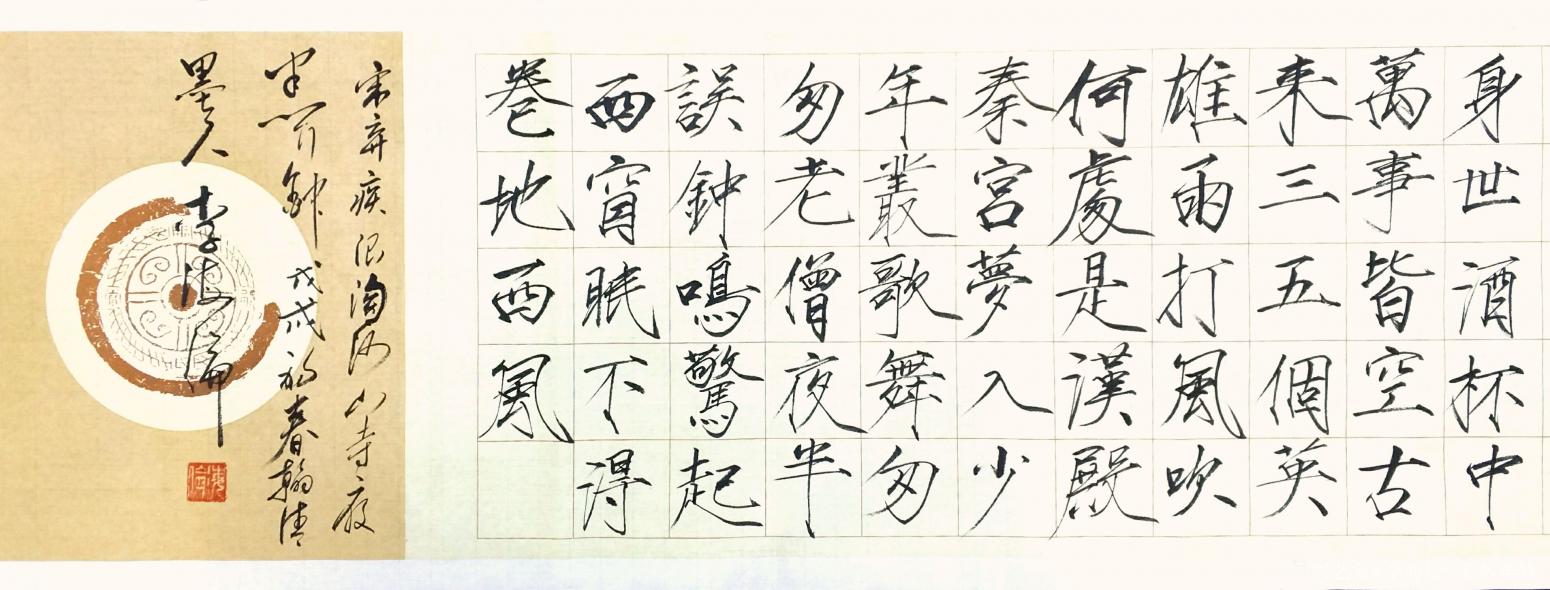 身世酒杯中
萬事皆空古
来三五個英
雄雨打風吹
何處是漢殿
秦宮夢入少
年叢歌舞匆
匆老僧夜半
誤鈡鳴驚起
西窗眠不得
卷地西風
宋弃疾浪淘沙山寺夜
半闻鈡 戊戌初春翰清
墨人 李海倫
海倫